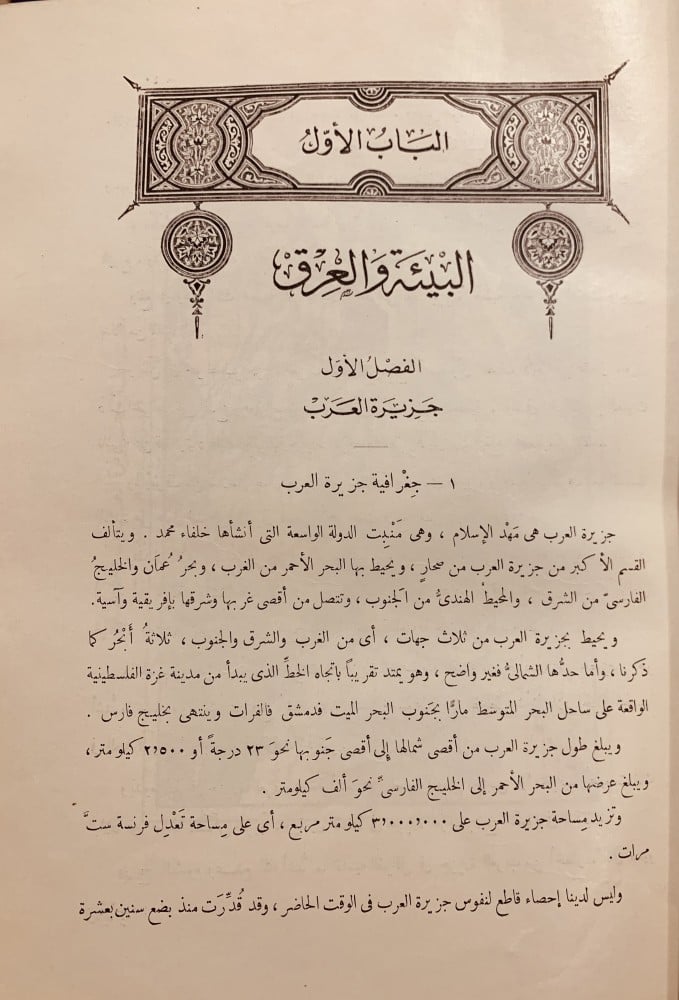 البَابُ الأوّلُ
البيئة والعِرق
الفصْلُ الأوّل
جَزيرَة العَرَبْ
١ — جِغْرافية جزيرة العرب
جزيرة العرب هى مَهْد الإسلام ، وهى مَنْبِت الدولة الواسعة التى أنشأها خلفاء محمد . ويتألف
القسم الأكبر من جزيرة العرب من صحارٍ ، ويحيط بها البحر الأحمر من الغرب ، وبحرُ عُمَان والخليجُ
الفارسىّ من الشرق ، والمحيطُ الهندىُّ من الجنوب ، وتتصل من أقصى غربها وشرقها بإفريقية وآسية.
ويحيط بجزيرة العرب من ثلاث جهات ، أى من الغرب والشرق والجنوب ، ثلاثةُ أَبْحُر كما
ذكرنا ، وأما حدُّها الشمالىُّ فغير واضح ، وهو يمتد تقريباً باتجاه الخطِّ الذى يبدأ من مدينة غزة الفلسطينية
الواقعة على ساحل البحر المتوسط مارًّا بجَنوب البحر الميت فدمشق فالفرات وينتهى بخليج فارس .
ويبلغ طول جزيرة العرب من أقصى شمالها إلى أقصى جَنوبها نحوَ ٢٣ درجةً أو ٢٬٥٠٠ كيلو متر ،
ويبلغ عرضها من البحر الأحمر إلى الخليج الفارسىِّ نحوَ ألف كيلومتر .
وتزيد مِساحة جزيرة العرب على ٣٬٠٠٠٬٠٠٠ كيلو متر مربع ، أى على مِساحة تَعْدِل فرنسة ستَّ
مرات .
وليس لدينا إحصاء قاطع لنفوس جزيرة العرب فى الوقت الحاضر ، وقد قُدِّرَت منذ بضع سنين بعشرة